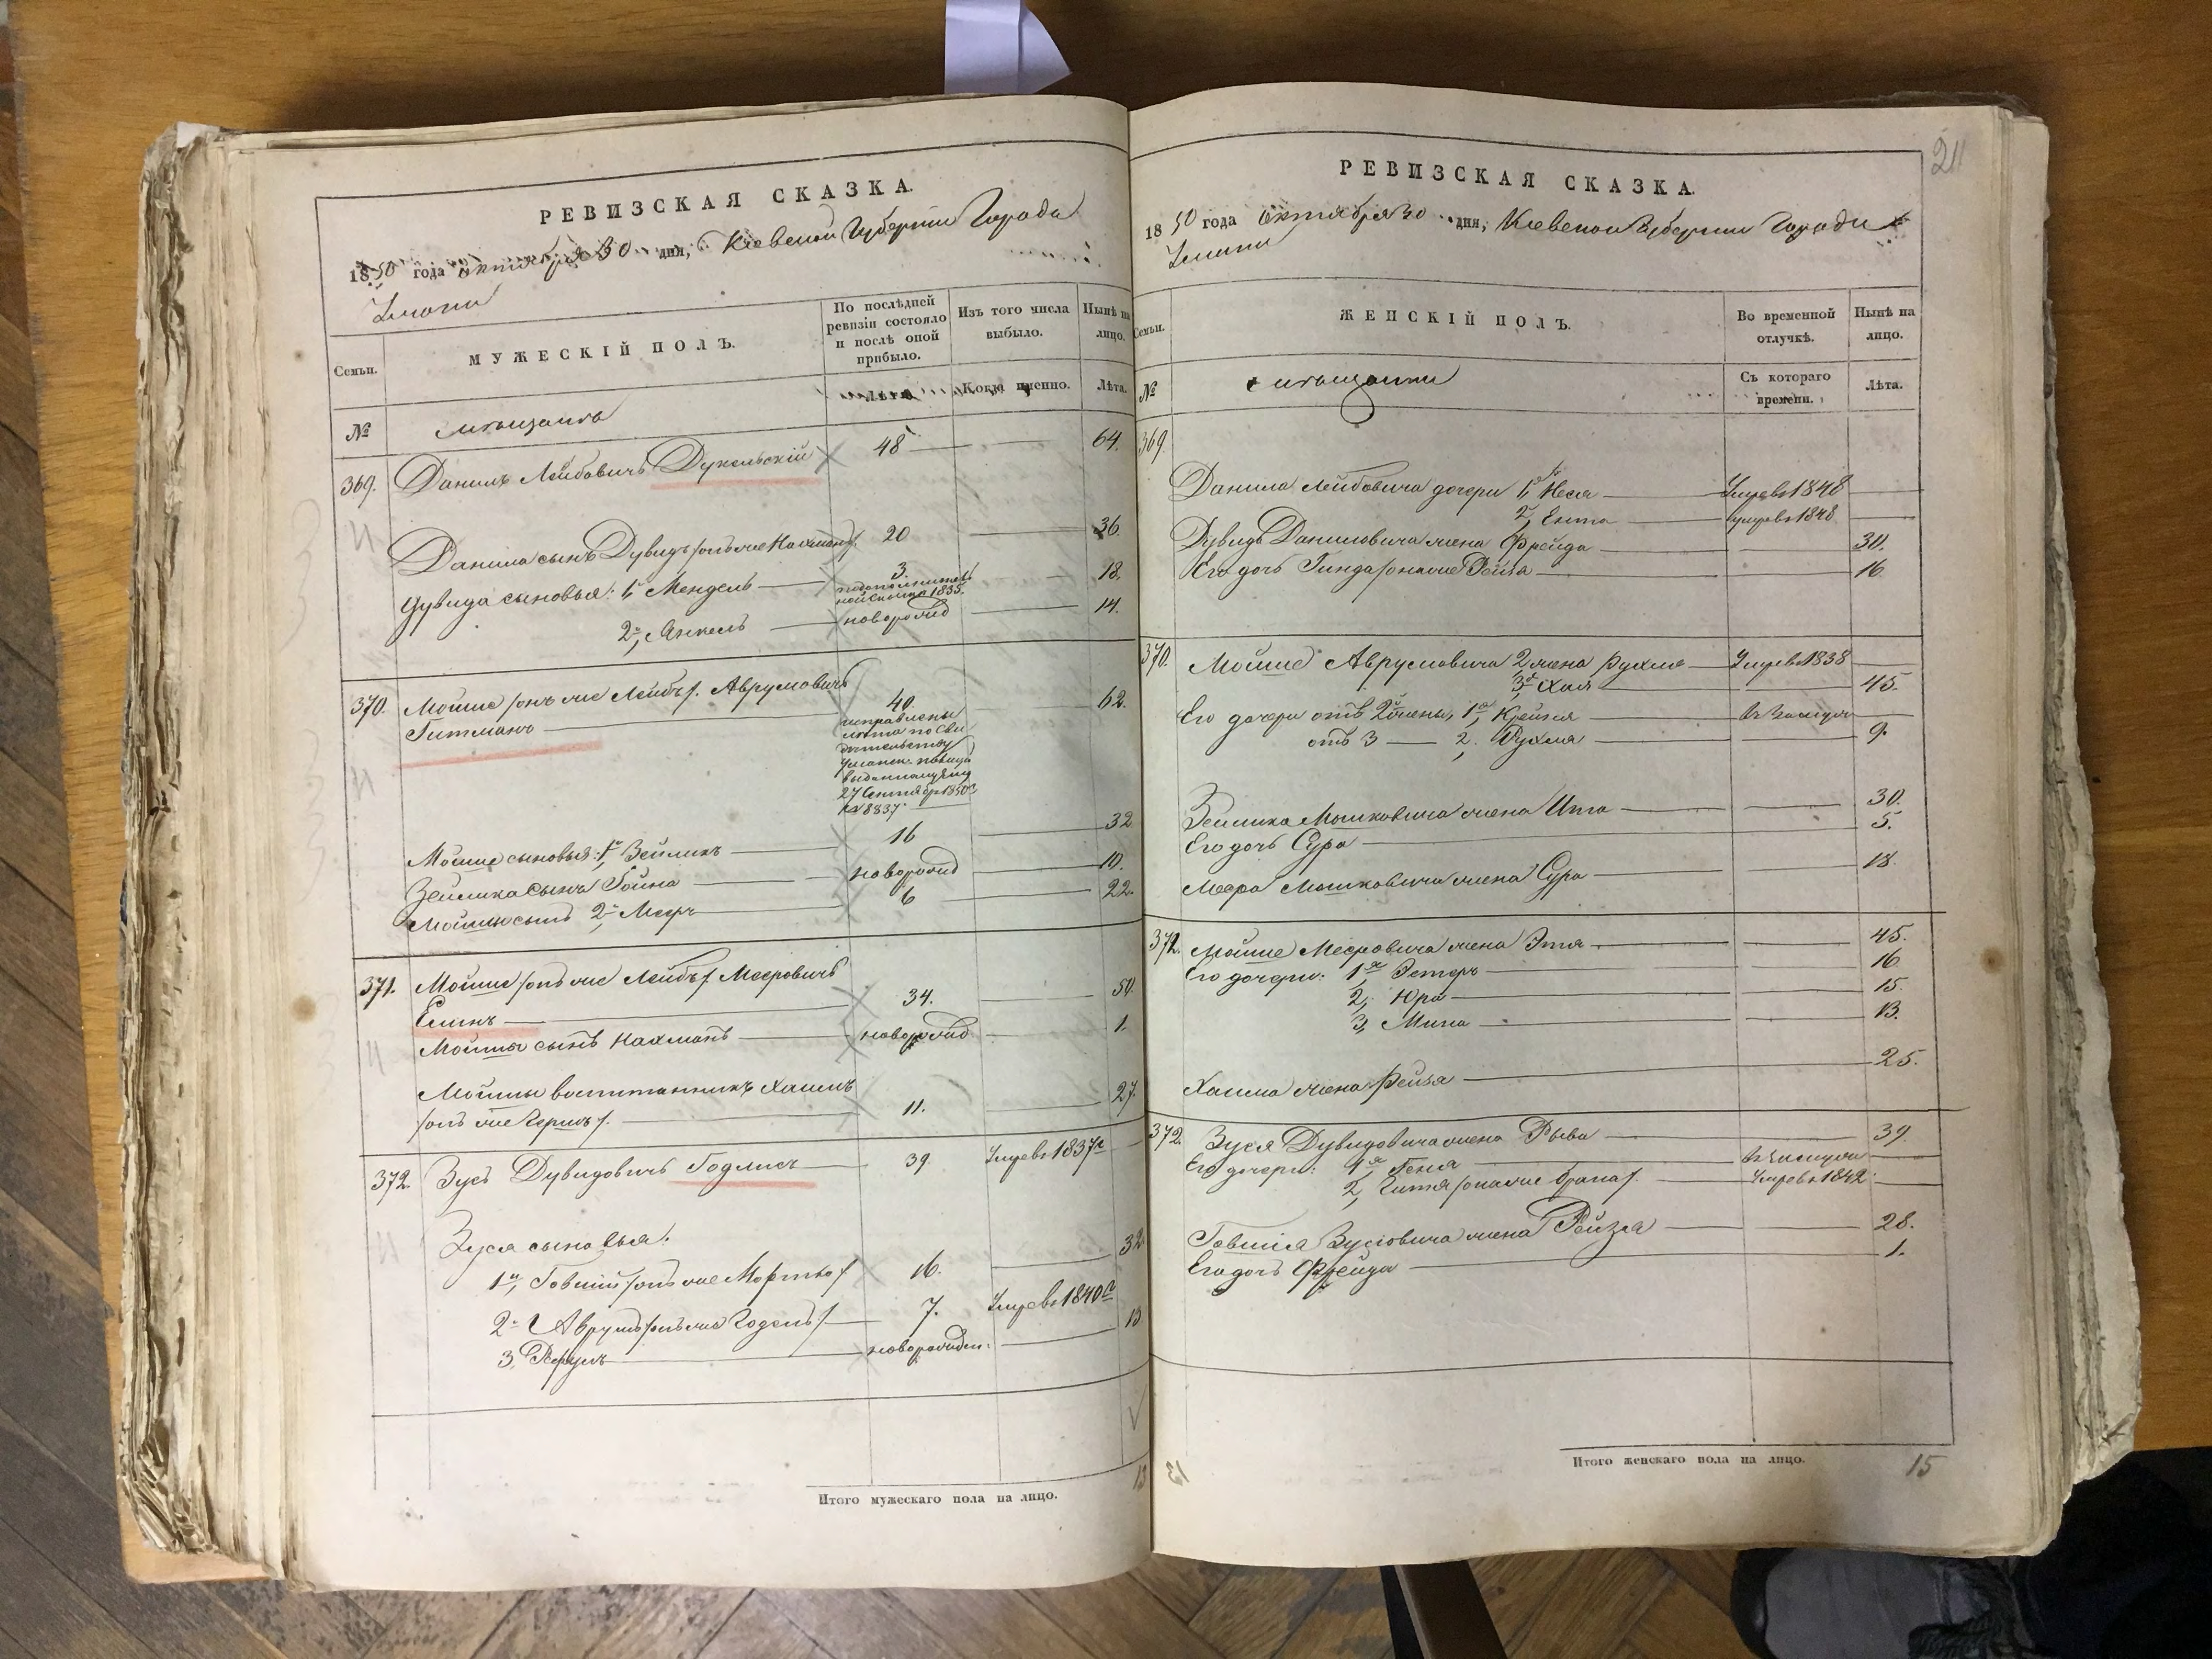 РЕВИЗСКАЯ СКАЗКА.
1850 года октября 30 дня, Кіевской Губерніи Города
Умани
Семьи.
МУЖЕСКІЙ ПОЛЪ.
По послѣдней ревизіи состояло и послѣ оной прибыло.
Изъ того числа выбыло.
Нынѣ на лицо.
№
мѣщанъ
Лѣта
Когда именно.
Лѣта.
369. Данилъ Лейбовичъ Дукельскій 48 64.
Данила сынъ Дувидъ /онъ же Нахманъ/. 20 36.
Дувида сыновья: 1й Мендель 3. 18.
1835.
2й, Янкель новорожд 14.
370. Мошко /онъ же Лейбъ/. Аврумовичъ
Гитманъ 40. 62.
исправлены
лѣта по сви
дѣтельству
27 Сентября 1850 г.
№ 8837
Мошки сыновья: 1й Зейликъ 16 32
Зейлика сынъ Гойна новорожд 10.
Мошки сынъ 2й Меер 6 22.
371. Мошко /онъ же Лейбъ/. Мееровичъ
Елинъ 34. 50
Мошки сынъ Нахманъ новорожд 1.
Мошки воспитанникъ Хаимъ
/онъ же Гершъ/. 11. 27
372. Зусь Дувидовичъ Годлисъ 39 Умре въ 1837 г
Зуся сыновья:
1й, Говшій /онъ же Мортко/ 16. 32
2й Аврумъ /онъ же Годель/ 7. Умре въ 1840 г
3, новорожден. 13
Итого мужескаго пола на лицо. 13
21
РЕВИЗСКАЯ СКАЗКА.
1850 года октября 30 дня, Кіевской Губерніи Города
Умани
Семьи.
ЖЕНСКІЙ ПОЛЪ.
Во временной отлучкѣ.
Нынѣ на лицо.
№
мѣщанки
Съ котораго времени.
Лѣта.
369.
Данила Лейбовича дочери 1я Неся Умре въ 1848
2, Ента умре въ 1848
Дувидъ Даниловича жена Фрейда 30.
Его дочь Гинда /она же Рейза 16
370. Мошко Аврумовича 2 жена Рухля Умре въ 1838
3я Хая 45.
Его дочери отъ 2й жены, 1я, Крейня въ замуж
отъ 3 2. Рухля 9
Зейлика Мошковича жена Ита 30.
Его дочь Сура 5.
Меера Мошковича жена Сура 18.
371. Мошко Мееровича жена Этя 45.
Его дочери: 1я Эстеръ 16
2, Юра 15
3, Мина 13.
Хаима жена Рейзя 25.
372. Зуся Дувидовича жена Рыва 39.
Его дочери: 1я Геня въ замуж
2, Гитля /она же Брана/. Умре въ 1842
Говшія Зусіовича жена Рейзя 28.
Его дочь Фрейда 1.
Итого женскаго пола на лицо. 15